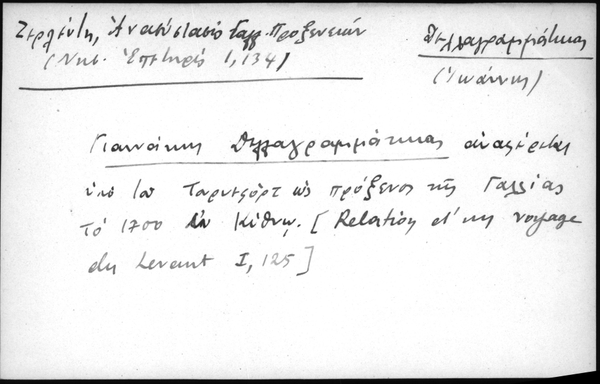 Ζερλέντη, Ἀνασύστασις Γαλλ. Προξενειῶν
(Νησ. Ἐπετηρίς 1, 134)
Δελλαγραμμάτικας
(Ἰωάννης)
Γιαννάκης Δελλαγραμμάτικας ἀναφέρεται
ὑπὸ τοῦ Τουρνεφόρτ ὡς πρόξενος τῆς Γαλλίας
τὸ 1700 ἐν Κύθνῳ. [Relation d'un voyage
du Levant I, 125]